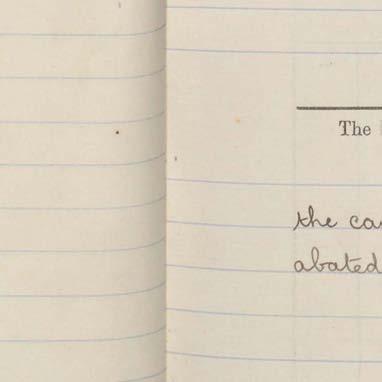 The
the ca
abated